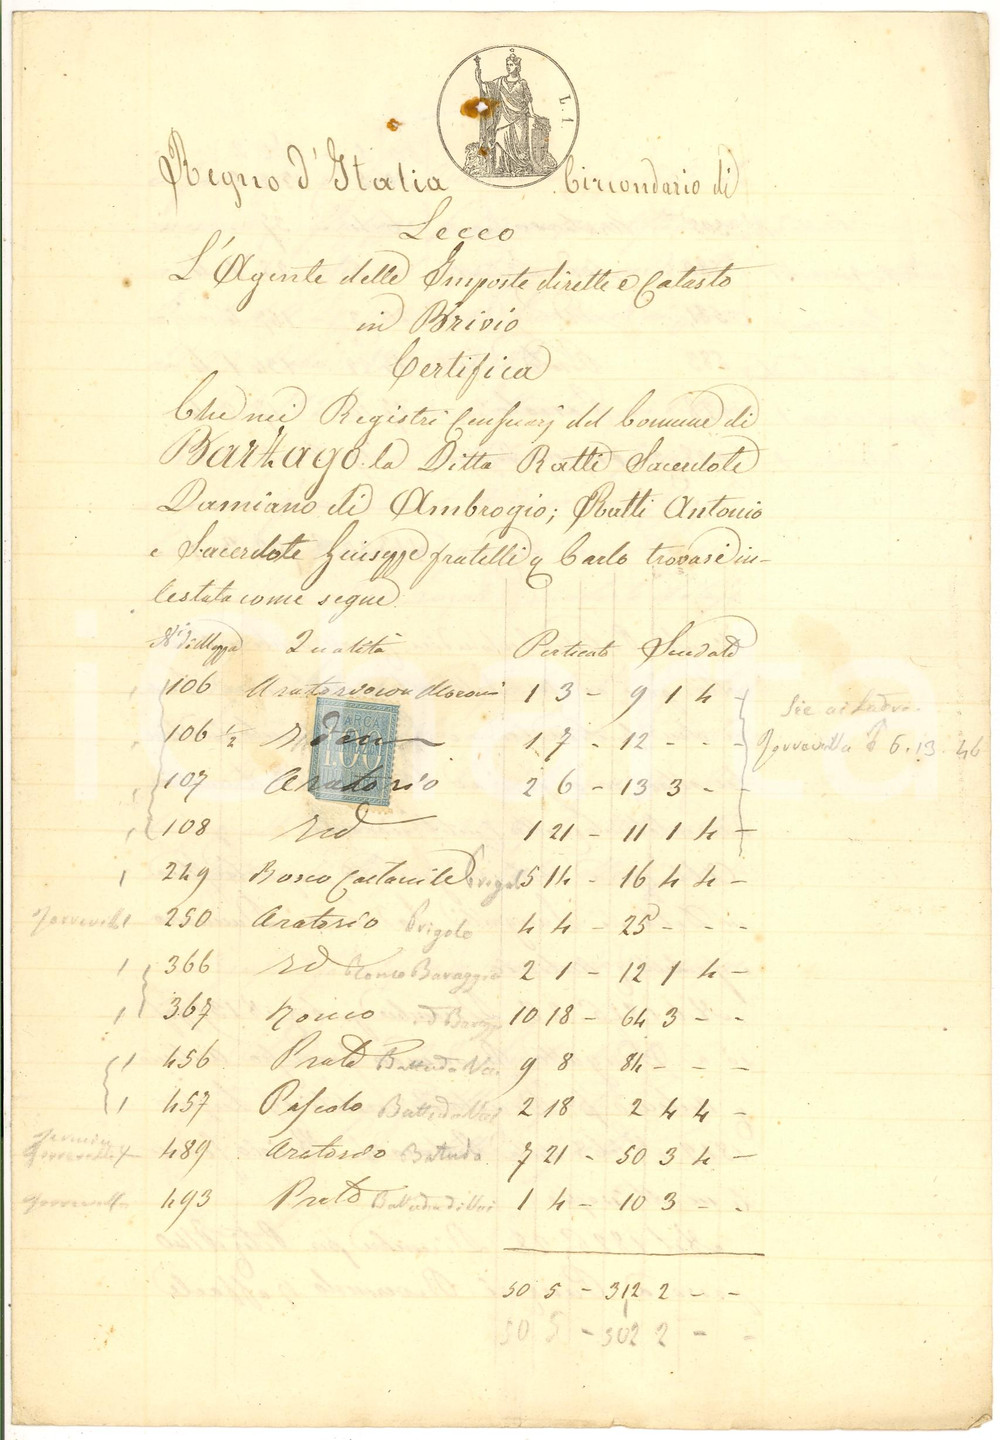 L. 1
Regno d'Italia Circondario di
Lecco
L'Agente delle Imposte dirette e Catasto
in Brivio
Certifica
Che nei Registri Censuarj del Comune di
Barzago la Ditta Ratti Sacerdote
Damiano di Ambrogio; Ratti Antonio
e Sacerdote Giuseppe fratelli q Carlo trovasi in-
testata come segue
Ni di Mappa Qualità Perticato Scudato
106 Aratorio con Moroni 1 3 - 9 1 4
106 1/2 Idem 1 7 - 12 - - -
MARCA
1.00
107 Aratorio 2 6 - 13 3 - -
108 Id 1 21 - 11 1 4 -
249 Bosco Castanile Prigole 5 14 - 16 4 4 -
250 Aratorio Prigole 4 4 - 25 - - -
366 Id Ronco Baraggia 2 1 - 12 1 4 -
367 Ronco id 10 18 - 64 3 - -
456 Prato Battuda 9 8 84 - - -
457 Pascolo 2 18 2 4 4 -
489 Aratorio Battuda 7 21 - 50 3 4 -
493 Prato 1 4 - 10 3 - -
50 5 - 312 2 - -
50 5 - 302 2 - -
6. 13. 46